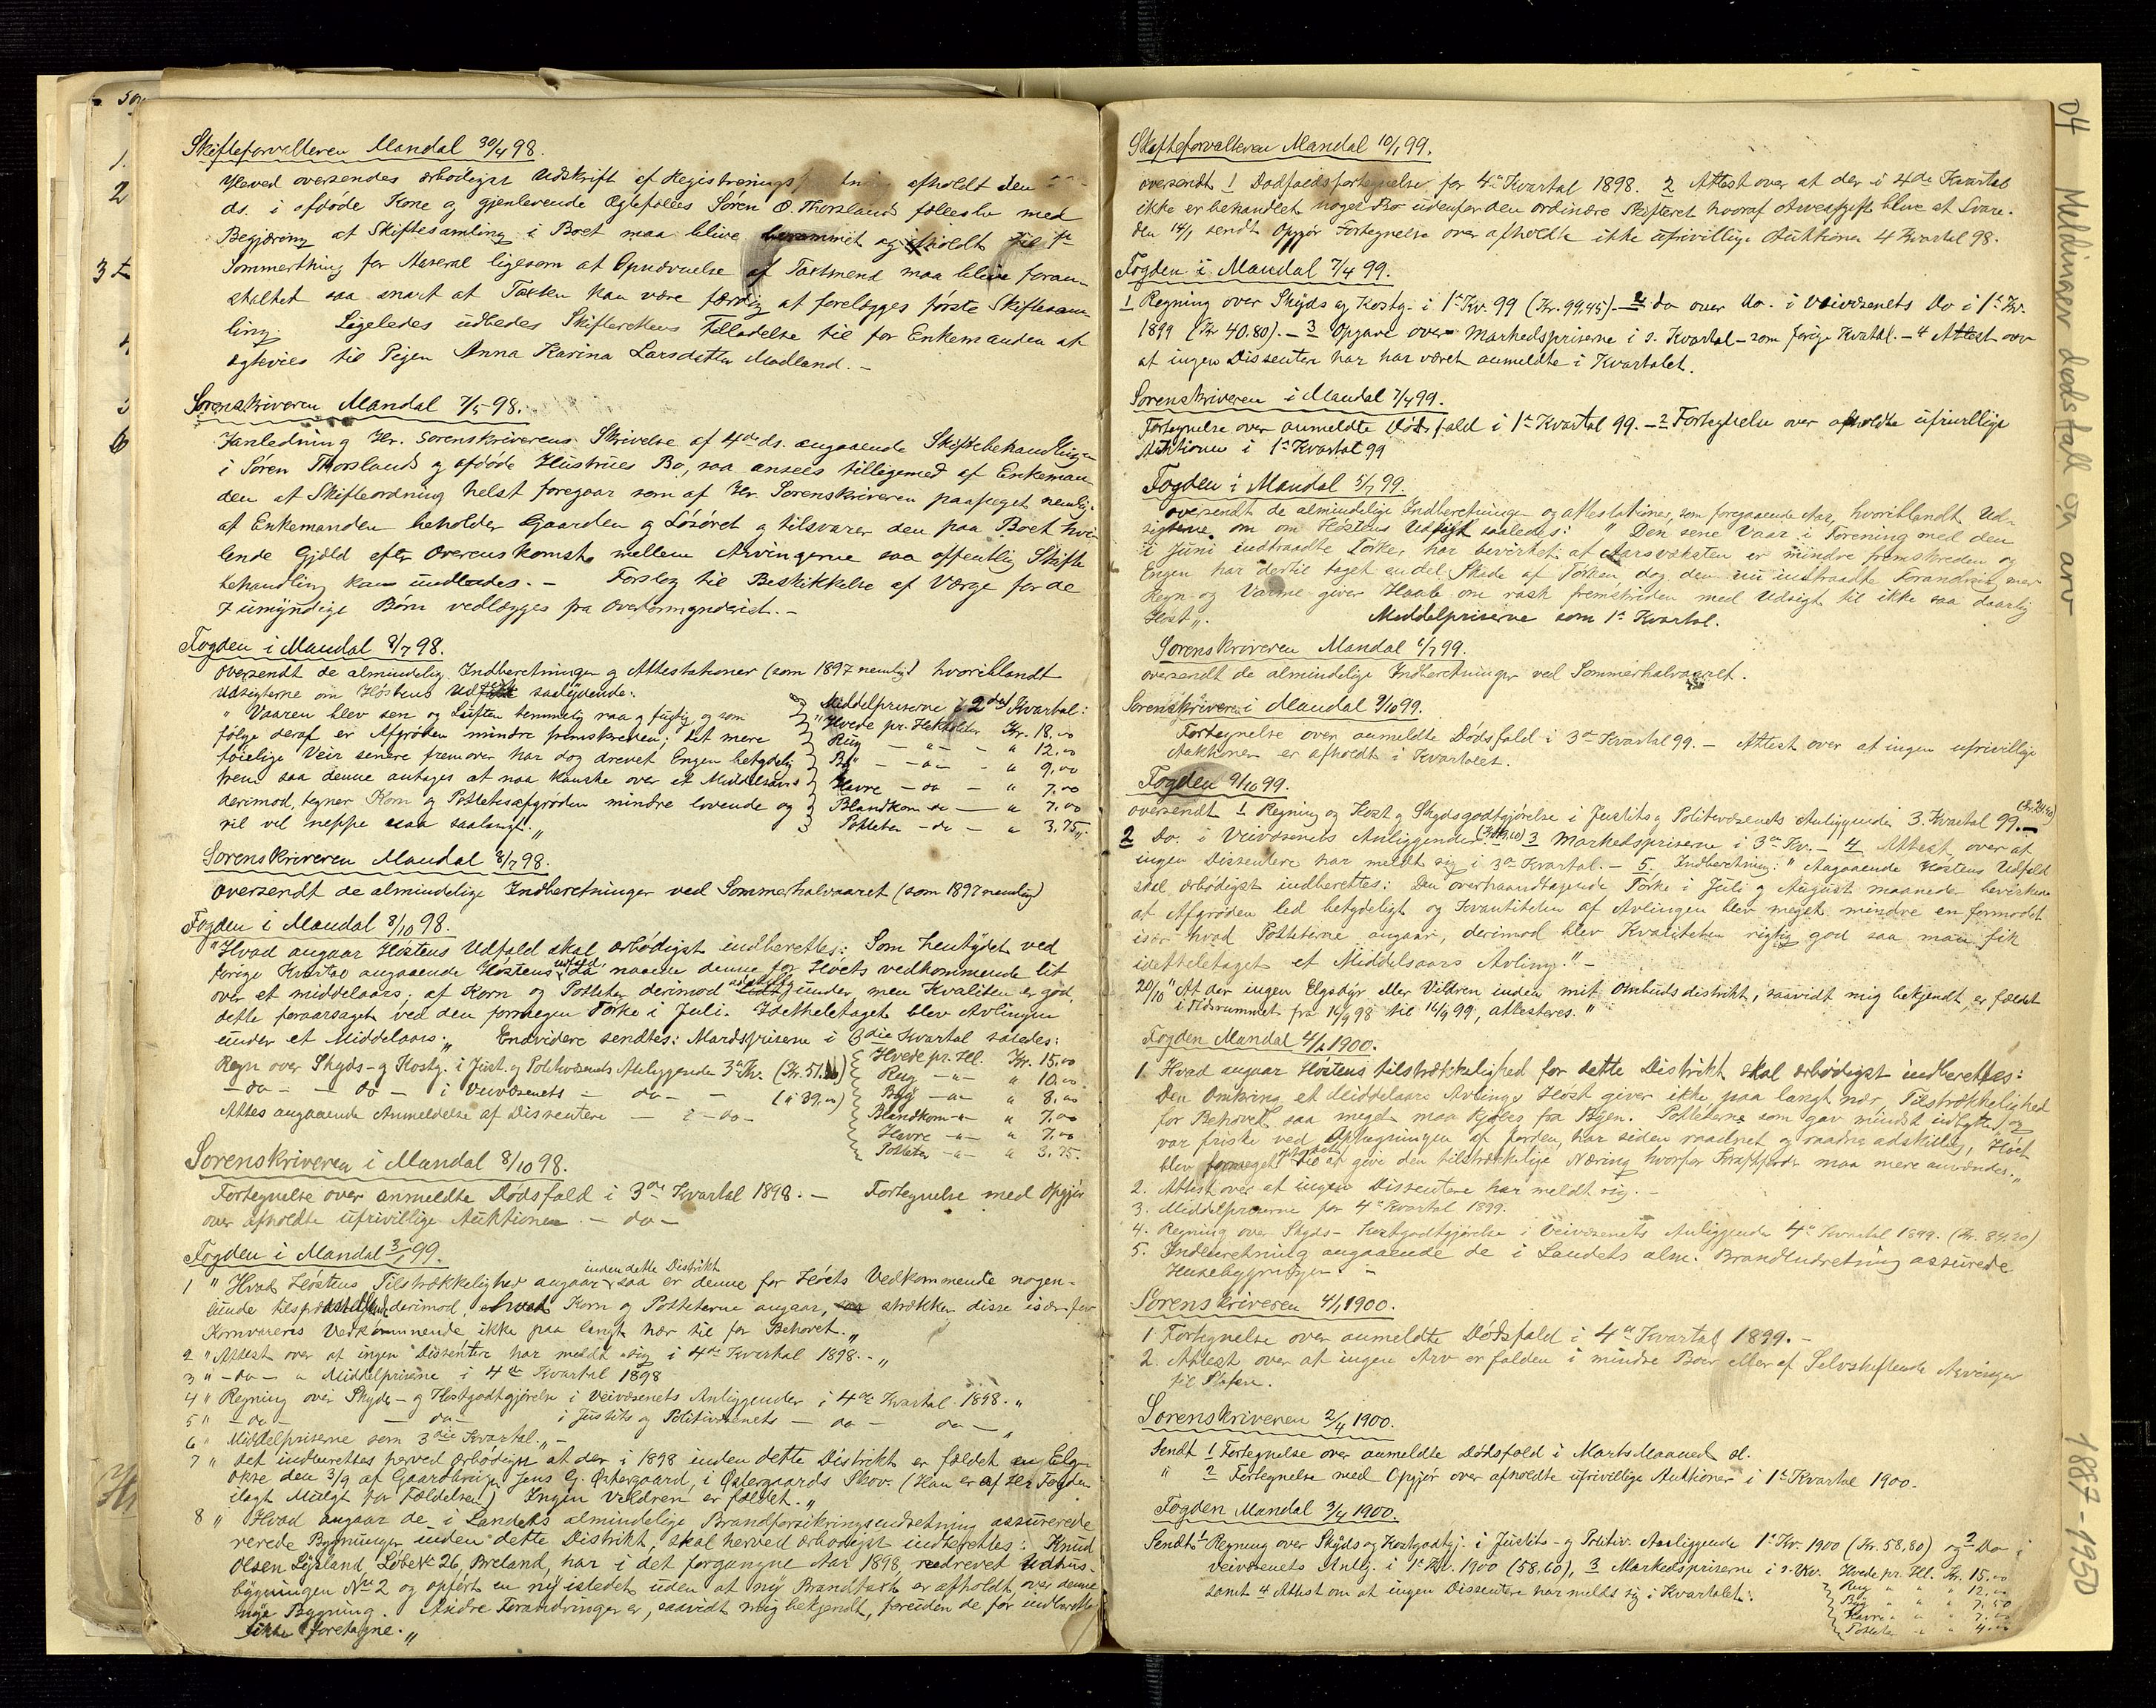 Skifteforvalteren Mandal 30/4 98.
Hleved oversendes ærbødigst Udskrift af Registrerings afholdt den
ds. i afdøde Kone og gjenlevende Ægtefælles Sören O. Thorslands fællesbo med
Begjæring at Skiftesamling i Boet maa blive berammet og afholdt til 1ste
Sommerthing for Aaseral ligesom at Opnævnelse af Taxtmend maa blive foran-
staltet saa snart at Taxten kan være færdig at forelægges første Skiftesam-
ling. Ligeledes udbedes Skifterettens Tilladelse til for Enkemanden at
ægtevies til Pigen Anna Karina Larsdatter Modland. -
Sorenskriveren Mandal 7/5 98.
I anledning Hr. Sorenskriverens Skrivelse af 4de ds. angaaende Skiftebehandlingen
i Sören Thorslands og afdøde Hustrues Bo, saa ansees tilligemed af Enkeman-
den at Skifteordning helst foregaar som af Hr. Sorenskriveren paapeget nemlig
at Enkemanden beholder Gaarden og Lösöret og tilsvarer den paa Boet hvi-
lende Gjæld efter Overenskomst mellem Arvingerne saa offentlig Skifte-
behandling kan undlades. - Forslag til Beskikkelse af Værge for de
7 umyndige Børn vedlægges fra Overformynderiet. -
Fogden i Mandal 8/7 98.
oversendt de almindelig Indberetninger og Attestationer (som 1897 nemlig) hvoriblandt
Udsigterne om Høstens Udfald saalydende:
" Vaaren blev sen og Luften temmelig raa og fugtig, og som
følge deraf er Afgrøden mindre fremskreden; det mere
føielige Veir senere fremover har dog drevet Engen betydelig
frem saa denne antages at naa kanske over et Middelsaar,
derimod tegner Korn og Potetesafgrøden mindre lovende og
vil vel neppe naa saalangt. "
Middelpriserne i 2det Kvartal:
" Hvede pr. Hektoliter Kr. 18,00
Rug - " - " 12.00
Byg - " - " 9,00
Havre - do - " 7,00
Blandkorn do - " 7.00
Potteter - do - " 3,75 "
Sorenskriveren Mandal 8/7 98.
oversendt de almindelige Indberetninger ved Sommerhalvaaret (som 1897 nemlig)
Fogden i Mandal 8/10 98.
" Hvad angaar Høstens Udfald skal ærbødigst indberettes: Som hentydet ved
forige Kvartal angaaende Høstens udfald, da naaede denne for Høets vedkommende lit
over et middelaars; af Korn og Potteter derimod adskillig under, men Kvaliteten er god,
dette foraarsaget ved den formegen Tørke i Juli. Idetheletaget blev Avlingen
under et Middelaars. " Endvidere sendtes: Mardspriserne i 3die Kvartal saledes:
Regn over Skyds- og Kostg. i Just. og Politivæsenets Anliggende 3die Kv. (Kr. 51.)
- do - - do - i Veivæsenets - do - - (" 39,00)
Attes angaaende Anmeldelse af Dissentere - i - do -
Hvede pr. Hl. Kr. 15.00
Rug - " - " 10.00
Byg - " - " 8,00
Blandkorn - " - " 7,00
Havre - " - " 7.00
Potteter - " - " 3,75.
Sorenskriveren i Mandal 8/10 98.
Fortegnelse over anmeldte Dødsfald i 3die Kvartal 1898. - Fortegnelse med Opgjør
over afholdte ufrivillige Auktioner. - do -
Fogden i Mandal 3/1 99.
1 " Hvad Høstens Tilstrækkelighed angaar inden dette Distrikt saa er denne for Høets Vedkommende nogen-
lunde tilstrækkelig, derimod hvad Korn og Potteterne angaar, strækker disse især for
Kornvarens Vedkommende ikke paa langt nær til for Behovet. "
2 " Attest over at ingen Dissentere har meldt sig i 4de Kvartal 1898. - "
3 " - do - " Middelpriserne i 4de Kvartal 1898
4 " Regning over Skyds- og Kostgodtgjørelse i Veivæsenets Anliggender i 4de Kvartal 1898. "
5 " - do - - do - i Justits og Politivæsenets - do - do - "
6 " Middelpriserne som 3die Kvartal. " -
7 " Det indberettes herved ærbødigst at der i 1898 inden dette Distrikt er fældet en Elg-
okse den 3/9 af Gaardbruger Jens G. Østergaard, i Østergaards Skov. (Han er af Hr Fogden
ilagt Mulgt for Fældelsen) Ingen Vildren er fældet. "
8 " Hvad angaar de i Landets almindelige Brandforsikringsindretning assurerede
rerede Bygninger inden dette Distrikt, skal herved ærbødigst indberettes: Knud
Olsen Lysland, Løbe No 26, Breland, har i det forgangne Aar 1898, nedrevet Udhus-
bygningen No 2 og opført en ny istedet uden at ny Brandtaxt er afholdt over denne
nye Bygning. Andre Forandringer er, saavidt mig bekjendt, foruden de før indberette
ikke foretagne. "
Skifteforvalteren Mandal 10/1 99.
oversendt 1 Dødfaldsfortegnelse for 4de Kvartal 1898. 2 Attest over at der i 4de Kvartal
ikke er behandlet noget Bo udenfor den ordinære Skifteret hvoraf Arveafgift blive at Svare.
den 14/1 sendt Opgjør Fortegnelse over afholdte ikke ufrivillige Auktioner 4 Kvartal 98.
Fogden i Mandal 7/4 99.
1 Regning over Skyds og Kostg. i 1st Kv. 99 (Kr. 99.45). - 2 do over do. i Veivæsenets do i 1st Kv.
1899 (Kr 40.80). - 3 Opgave over Markedspriserne i s. Kvartal - som forige Kvartal. - 4 Attest over
at ingen Dissentere har har været anmeldte i Kvartalet.
Sorenskriveren i Mandal 7/4 99.
Fortegnelse over anmeldte Dødsfald i 1st Kvartal 99. - 2 Fortegnelse over afholdte ufrivillige
Auktioner i 1st Kvartal 99
Fogden i Mandal 5/7 99.
oversendt de almindelige Indberetninger og attestationer, som foregaaende Aar, hvoriblandt Ud-
sigterne om om Høstens Udfald saaledes: " Den sene Vaar i Forening med den
i Juni indtraadte Tørke, har bevirket at Aarsvæksten er mindre fremskreden og
Engen har dertil taget endel Skade af Tørken, dog den nu indtraadte Forandring med
Regn og Varme giver Haab om rask fremskriden med Udsigt til ikke saa daarlig
Høst ". Middelpriserne som 1st Kvartal.
Sorenskriveren Mandal 6/7 99.
oversendt de almindelige Indberetninger ved Sommerhalvaaret.
Sorenskriveren i Mandal 9/10 99.
Fortegnelse over anmeldte Dødsfald i 3die Kvartal 99. - Attest over at ingen ufrivillige
Auktioner er afholdt i Kvartalet.
Fogden 9/10 99.
oversendt 1 Regning og Kost og Skydsgodtgjørelse i Justits og Politivæsenets Anliggender 3 Kvartal 99. -
2 Do. i Veivæsenets Anliggender 3 Markedspriserne i 3die Kv. - 4 Attest over at
ingen Dissentere har meldt sig i 3die Kvartal. - 5. Indberetning: " Angaaende Høstens Udfald
skal ærbødigst indberettes: Den overhaandtagende Tørke i Juli og August maaneder bevirkede
at Afgrøden led betydeligt og Kvantiteten af Avlingen blev meget mindre en formodet
især hvad Potteterne angaar, derimod blev Kvaliteten rigtig god saa man fik
idetheletaget et Middelsaars Avling. " -
20/10 " At der ingen Elgsdyr eller Vildren inden mit Ombudsdistrikt, saavidt mig bekjendt, er fældet
i Tidsrummet fra 16/9 98 til 16/9 99, attesteres. "
Fogden Mandal 4/1 1900.
1 Hvad angaar Høstens tilstrækkelighed for dette Distrikt skal ærbødigst indberettes:
Den omkring et Middelaars Avlings Høst giver ikke paa langt nær Tilstrækkelighed
for Behovet saa meget maa kjøbes fra Byen. Potteterne som gav mindst udbytte og
var friske ved Optagningen af Jorden, har siden raadnet og raadner adskillig, Høet
blev formeget til at give den tilstrækkelige Næring hvorfor Kraftfoder maa mere anvendes. "
2. Attest over at ingen Dissentere har meldt sig. -
3. Middelpriserne for 4de Kvartal 1899.
4. Regning over Skyds- Kostgodtgjørelse i Veivæsenets Anliggender 4de Kvartal 1899. (Kr. 84,20)
5. Indberetning angaaende de i Landets alm. Brandindretning assurede
Husebygninger. -
Sorenskriveren 4/1 1900.
1 Fortegnelse over anmeldte Dødsfald i 4de Kvartal 1899. -
2. Attest over at ingen Arv er falden i mindre Boer eller af Selvskiftende Arvinger
til Staten.
Sorenskriveren 2/4 1900.
Sendt 1 Fortegnelse over anmeldte Dødsfald i Marts Maaned d.
" 2 Fortegnelse med Opgjør over afholdte ufrivillige Auktioner i 1st Kvartal 1900.
Fogden Mandal 3/4 1900.
Sendt 1 Regning over Skyds og Kostgodtgj. i Justits- og Politiv. Anliggende 1st Kv. 1900 (Kr. 58,80) og 2 Do i
veivæsenets Anlig. i 1st Kv. 1900 (58.60), 3 Markedspriserne i s. Kv. Hvede pr. Hl. Kr. 15.00
samt 4 Attest om at ingen Dissentere har meldt sig i Kvartalet.
Rug " " " 12,00
Byg " " " 7.50
Havre " " " 7.00
Potteter " " " 4.00
04 Meldinger dødsfall og arv 1887-1950